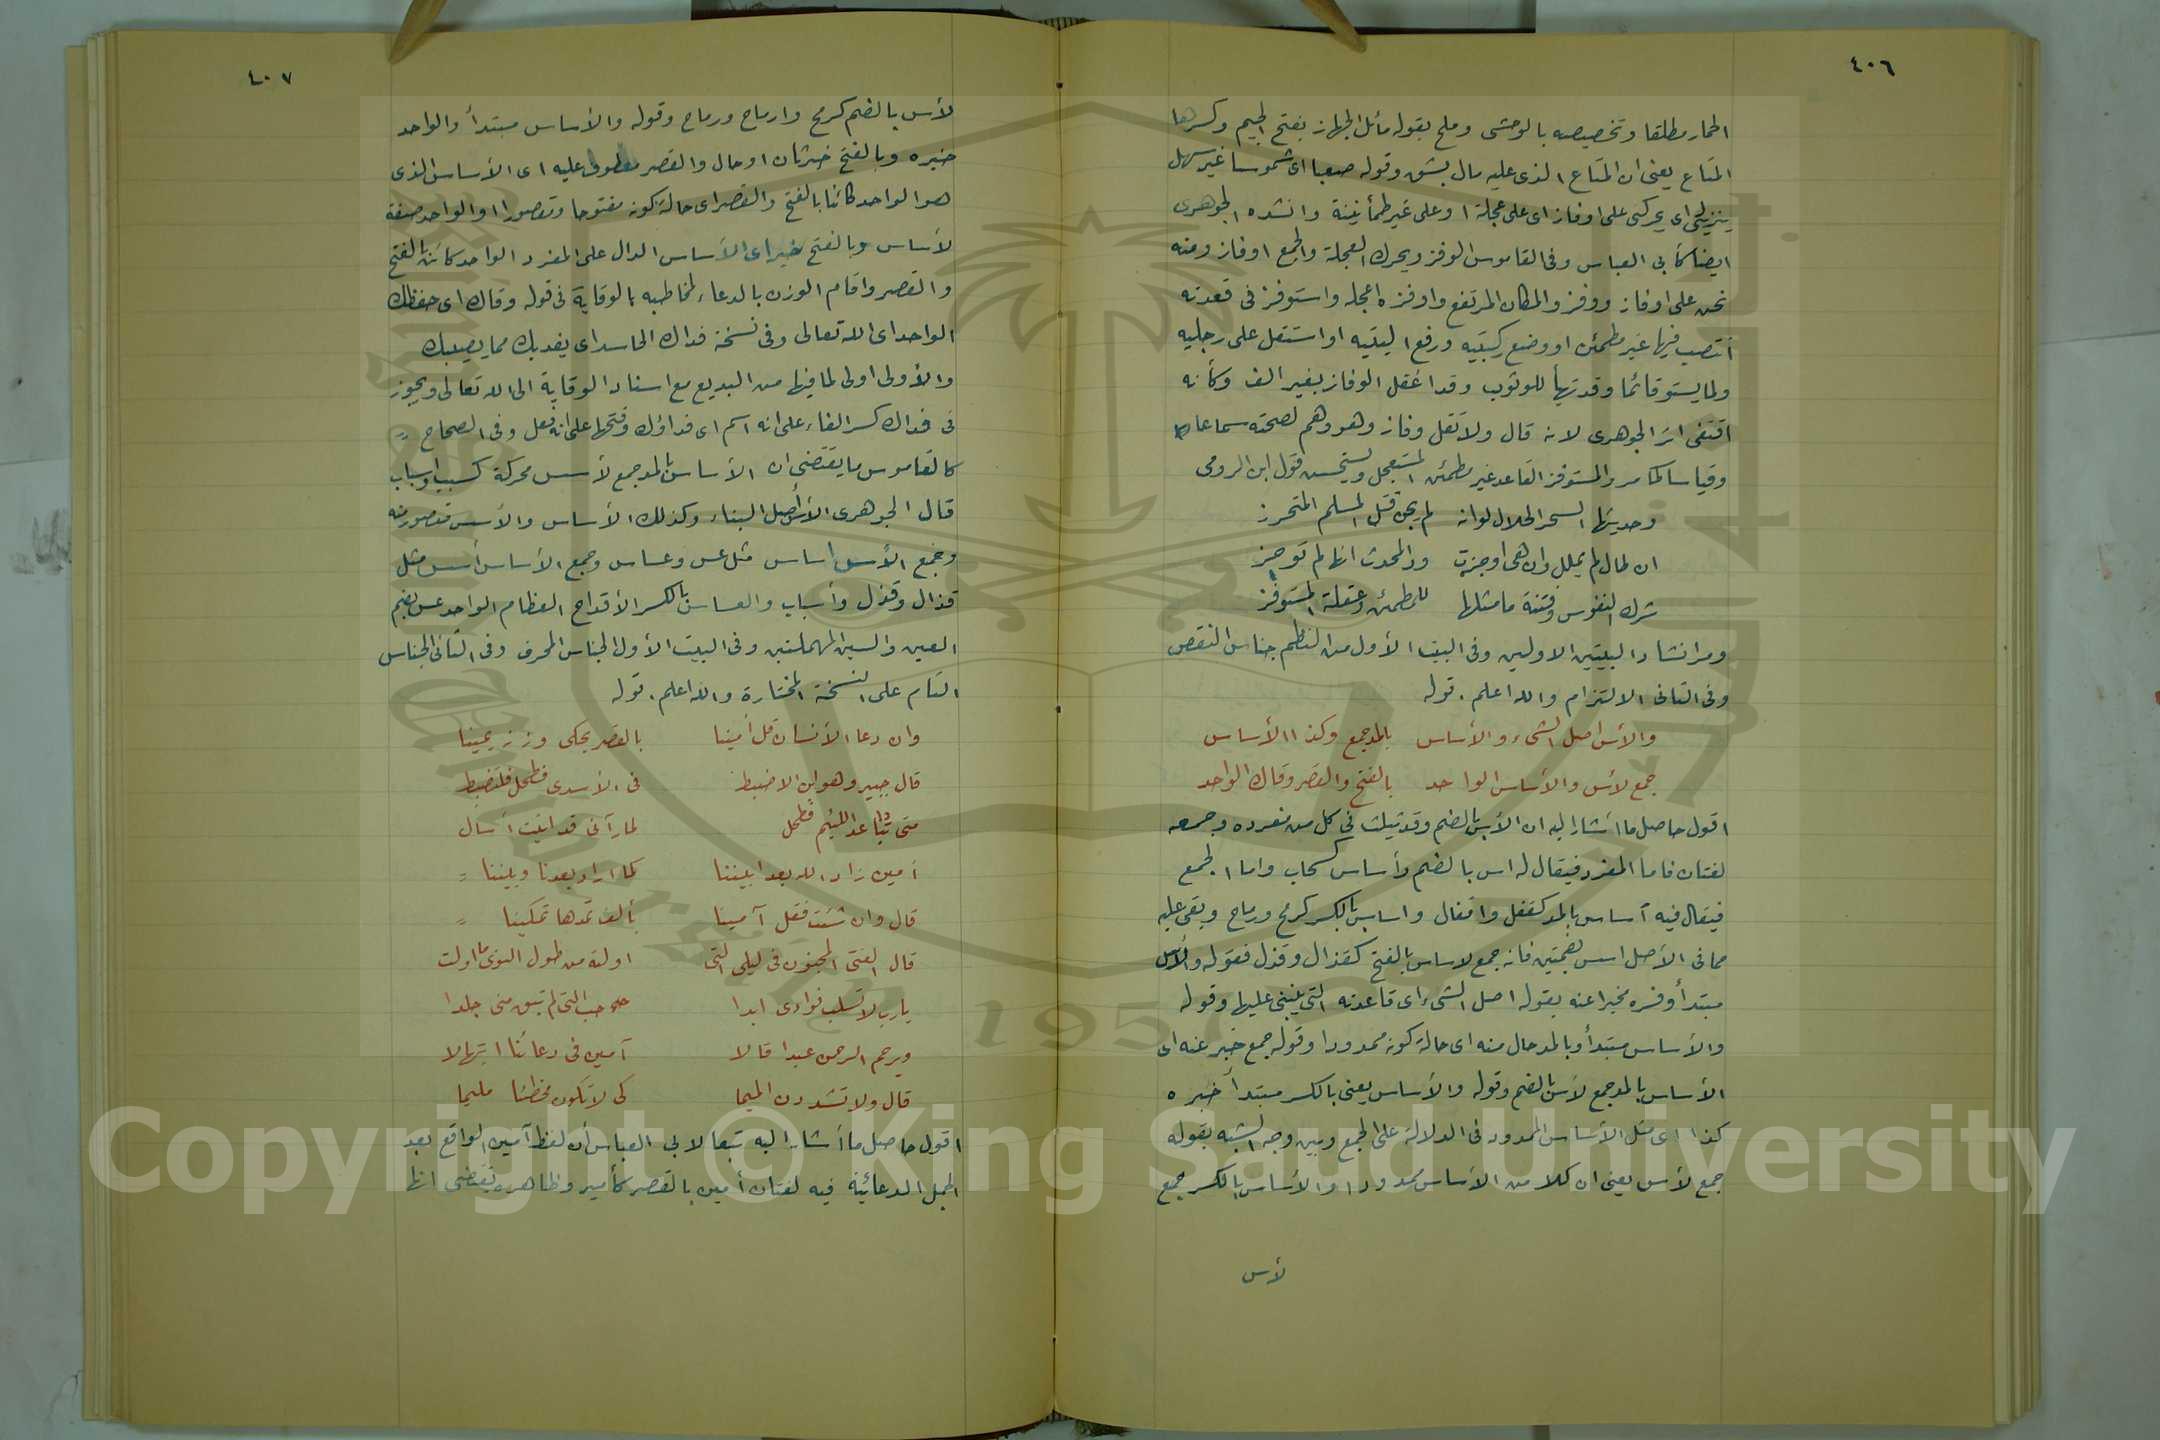 ٤٠٦
الحمار مطلقا وتخصيصه بالوحشى وملح بقوله مائل الجهاز بفتح الجيم وكسرها
المتاع يعنى ان المتاع الذى عليه مال بشق وقوله صعبا اى شموسا غير سهل
ينزيلى اى يحركنى على اوفاز اى على عجلة او على غير طمأنينة وانشده الجوهرى
ايضا كأبى العباس وفى القاموس الوفز ويحرك العجلة والجمع اوفاز ومنه
نحن على اوفاز ووفز والمكان المرتفع واوفزه اعجله واستوفز فى قعدته
انتصب فيها غير مطمئن او وضع ركبتيه ورفع اليتيه او استقل على رجليه
ولما يستو قائما وقد تهيأ للوثوب وقد اغفل الوفاز بغير الف وكأنه
اقتفى اثر الجوهرى لانه قال ولا تقل وفاز وهو وهم لصحته سماعا
وقياسا كما مر والمستوفز القاعد غير مطمئن المستعجل ويستحسن قول ابن الرومى
وحديثها السحر الحلال لوانه لم يجن قتل المسلم المتحرز
ان طال لم يملل وان هى اوجزت ود المحدث انها لم توجز
شرك النفوس وفتنة ما مثلها للمطمئن وعقلة المستوفز
ومر انشاد البيتين الاولين وفى البيت الأول من النظم جناس النقص
وفى الثانى الالتزام والله اعلم . قوله
والأس اصل الشىء والأساس بالمد جمع وكذا الأساس
جمع لأس والأساس الواحد بالفتح والقصر وقاك الواحد
اقول حاصل ما اشار اليه ان الأس بالضم وقد تثلث فى كل من مفرده وجمعه
لغتان فاما المفرد فيقال له اس بالضم وأساس كسحاب واما الجمع
فيقال فيه آساس بالمد كقفل واقفال واساس بالكسر كرمح ورماح وبقى عليه
مما فى الأصل اسس بضمتين فانه جمع لاساس بالفتح كقذال وقذل فقوله والأس
مبتدأ وفسره مخبرا عنه بقوله اصل الشىء اى قاعدته التى ينبنى عليها وقوله
والأساس مبتدأ وبالمد حال منه اى حالة كونه ممدودا وقوله جمع خبر عنه اى
الأساس بالمد جمع لأس بالضم وقوله والأساس يعنى بالكسر مبتدأ خبره
كذا اى مثل الأساس الممدود فى الدلالة على الجمع وبين وجه الشبه بقوله
جمع لأس يعنى ان كلا من الأساس ممدودا والأساس بالكسر جمع
لأس
٤٠٧
لأس بالضم كرمح وارماح ورماح وقوله والأساس مبتدأ والواحد
خبره وبالفتح خبر ثان او حال والقصر معطوف عليه اى الأساس الذى
هو الواحد كائنا بالفتح والقصر اى حالة كونه مفتوحا وقصورا او الواحد صفة
لأساس وبالفتح خبر اى الأساس الدال على المفرد الواحد كائن بالفتح
والقصر واقام الوزن بالدعاء لمخاطبه بالوقاية فى قوله وقاك اى حفظك
الواحد اى الله تعالى وفى نسخة فداك الحاسد اى يفديك مما يصيبك
والأولى اولى لما فيها من البديع مع اسناد الوقاية الى الله تعالى ويجوز
فى فداك كسر الفاء على انه اسم اى فداؤك وفتحها على انه فعل وفى الصحاح
كالقاموس ما يقتضى ان الآساس بالمد جمع لأسس محركة كسبب واسباب
قال الجوهرى الأس اصل البناء وكذلك الأساس والأسس مقصور منه
وجمع الأس إساس مثل عس وعساس وجمع الأساس أسس مثل
قذال وقذل وأسباب والعساس بالكسر الأقداح العظام الواحد عس بضم
العين والسين المهملتين وفى البيت الأول الجناس المحرف وفى الثانى الجناس
التام على النسخة المختارة والله اعلم . قوله
وان دعا الأنسان قل أمينا بالقصر يحكى وزنه يمينا
قال جبير وهو ابن الاضبط فى الأسدى فطحل فلتضبط
متى تباعد اللئيم فطحل لما رآنى قد اتيت اسال
أمين زاد الله بعدا بيننا كما اراد بعدنا وبيننا
قال وان شئت فقل آمينا بألف تمدها تمكينا
قال الفتى المجنون فى ليلى التى اولته من طول النوى ما اولت
يارب لا تسلب فؤادى ابدا حب التى لم تبق منى جلدا
ويرحم الرحمن عبدا قالا آمين فى دعائنا ابتهالا
قال ولا تشددن الميما كى لا تكون مخطئا مليما
اقول حاصل ما أشار اليه تبعا لابى العباس أن لفظ آمين الواقع بعد
الجمل الدعائية فيه لغتان أمين بالقصر كأمير وظاهره يقتضى انها
Copyright © King Saud University
1957